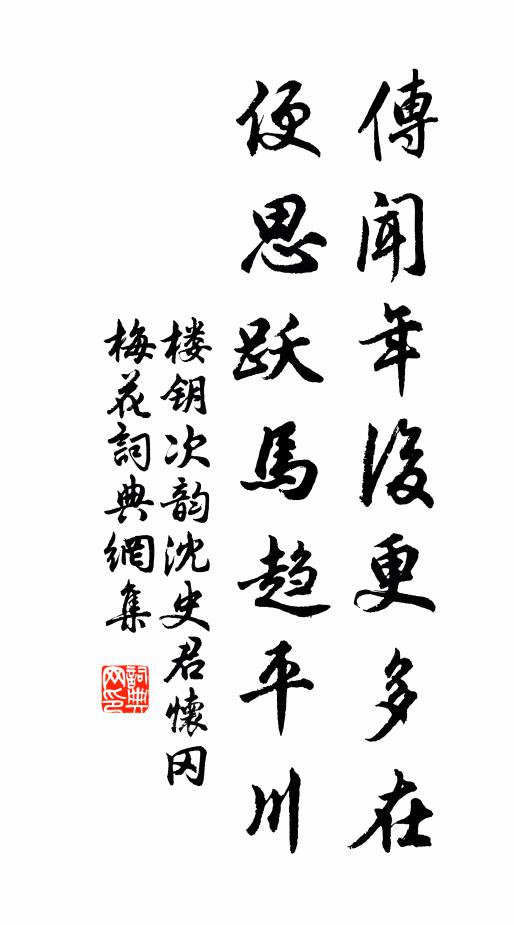 傳聞年後更多在
便思跃馬趋平川
楼钥次韵沈史君懷冈
梅花詞典網集
詞典网印